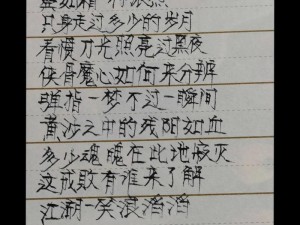 只身走过多少的岁月
看惯刀光照亮过黑夜
侠骨魔心如何来分辨
弹指一梦不过一瞬间
黄沙之中的残阳如血
多少魂魄在此地寂灭
这成败有谁来了解
江湖一笑浪滔滔